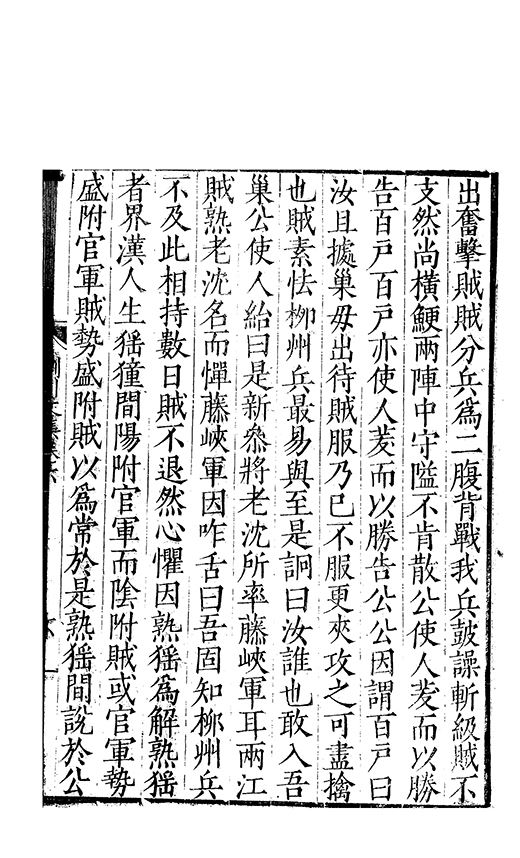 出奮擊賊賊分兵爲二腹背戰我兵鼓譟斬級賊不
支然尚橫鯁兩陣中守隘不肯散公使人芟而以勝
告百戸百戸亦使人芟而以勝告公公因謂百戸曰
汝且據巢毋出待賊服乃已不服更夾攻之可盡擒
也賊素怯柳州兵最易與至是詗曰汝誰也敢入吾
巢公使人紿曰是新叅將老沈所率藤峽軍耳兩江
賊熟老沈名而憚藤峽軍因咋舌曰吾固知柳州兵
不及此相持數日賊不退然心懼因熟猺爲解熟猺
者界漢人生猺獞間陽附官軍而陰附賊或官軍勢
盛附官軍賊勢盛附賊以爲常於是熟猺間說於公